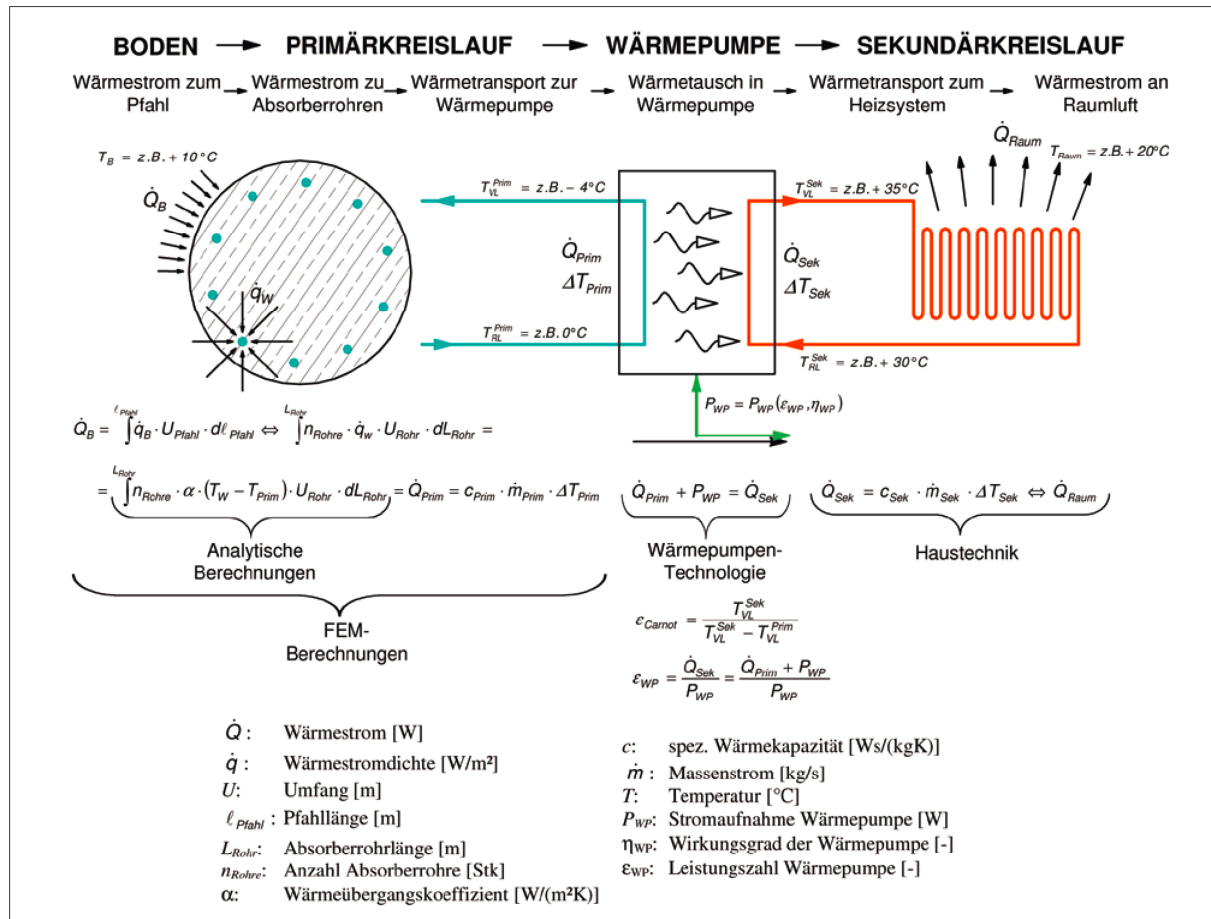 BODEN → PRIMÄRKREISLAUF → WÄRMEPUMPE → SEKUNDÄRKREISLAUF
Wärmestrom zum Pfahl → Wärmestrom zu Absorberrohren → Wärmetransport zur Wärmepumpe → Wärmetausch in Wärmepumpe → Wärmetransport zum Heizsystem → Wärmestrom an Raumluft
T_B = z.B. + 10°C
Q̇_B
q̇_W
T_VL^Prim = z.B. – 4°C
Q̇_Prim
ΔT_Prim
T_RL^Prim = z.B. 0°C
T_VL^Sek = z.B. + 35°C
Q̇_Sek
ΔT_Sek
T_RL^Sek = z.B. + 30°C
Q̇_Raum
T_Raum = z.B. + 20°C
P_WP = P_WP (ε_WP , η_WP)
Q̇_B = ∫^ℓ_Pfahl q̇_B · U_Pfahl · dℓ_Pfahl ⇔ ∫^L_Rohr n_Rohre · q̇_w · U_Rohr · dL_Rohr =
= ∫^L_Rohr n_Rohre · α · (T_W – T_Prim) · U_Rohr · dL_Rohr = Q̇_Prim = c_Prim · ṁ_Prim · ΔT_Prim
Analytische
Berechnungen
FEM-
Berechnungen
Q̇_Prim + P_WP = Q̇_Sek
Wärmepumpen-
Technologie
ε_Carnot = T_VL^Sek / (T_VL^Sek – T_VL^Prim)
ε_WP = Q̇_Sek / P_WP = (Q̇_Prim + P_WP) / P_WP
Q̇_Sek = c_Sek · ṁ_Sek · ΔT_Sek ⇔ Q̇_Raum
Haustechnik
Q̇ : Wärmestrom [W]
q̇ : Wärmestromdichte [W/m²]
U: Umfang [m]
ℓ_Pfahl : Pfahllänge [m]
L_Rohr: Absorberrohrlänge [m]
n_Rohre: Anzahl Absorberrohre [Stk]
α: Wärmeübergangskoeffizient [W/(m²K)]
c: spez. Wärmekapazität [Ws/(kgK)]
ṁ : Massenstrom [kg/s]
T: Temperatur [°C]
P_WP: Stromaufnahme Wärmepumpe [W]
η_WP: Wirkungsgrad der Wärmepumpe [-]
ε_WP: Leistungszahl Wärmepumpe [-]